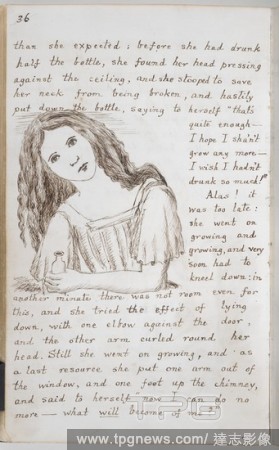 36
than she expected; before she had drank
half the bottle, she found her head pressing
against the ceiling, and she stooped to save
her neck from being broken, and hastily
put down the bottle, saying to herself "that's
quite enough—
I hope I shan't
grow any more—
I wish I hadn't
drunk so much!"
Alas! it
was too late:
she went on
growing and
growing, and very
soon had to
kneel down: in
another minute there was not room even for
this, and she tried the effect of lying
down, with one elbow against the door,
and the other arm curled round her
head. Still she went on growing, and as
a last resource she put one arm out of
the window, and one foot up the chimney,
and said to herself "now I can do no
more— what will become of me
TPG
www.tpgnews.com/ 達志影像